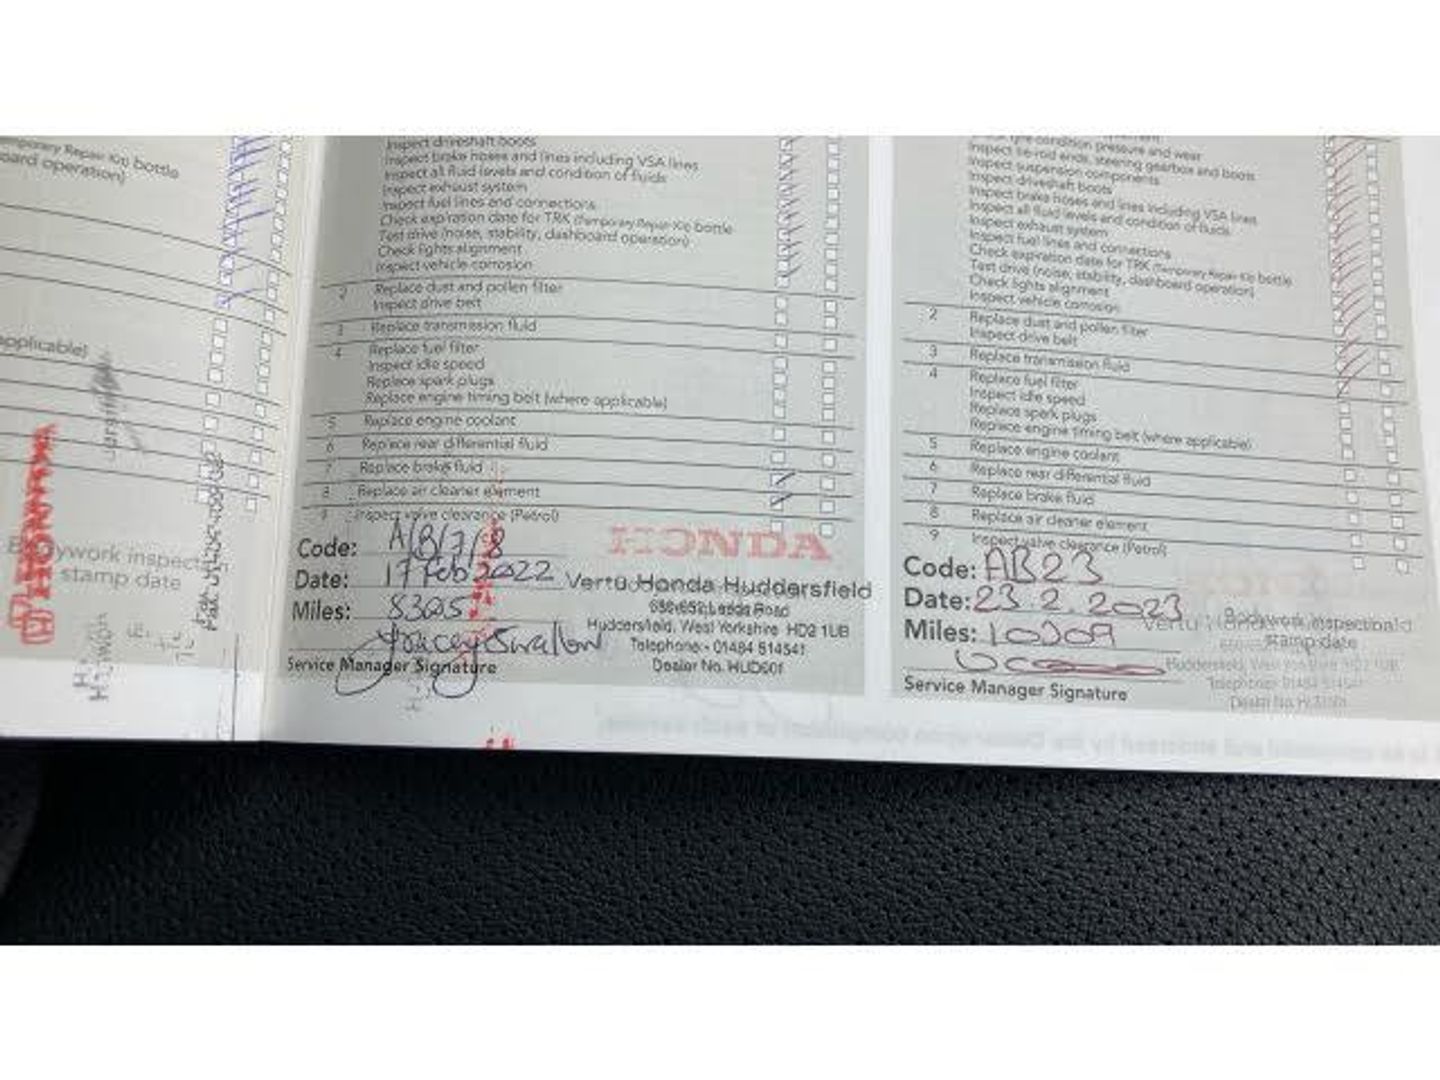 Temporary Repair Kit) bottle
board operation)
applicable)
Bodywork inspection
stamp date
Inspect driveshaft boots
Inspect brake hoses and lines including VSA lines
Inspect all fluid levels and condition of fluids
Inspect exhaust system
Inspect fuel lines and connections
Check expiration date for TRK (Temporary Repair Kit) bottle
Test drive (noise, stability, dashboard operation)
Check lights alignment
Inspect vehicle corrosion
2 Replace dust and pollen filter
Inspect drive belt
3 Replace transmission fluid
4 Replace fuel filter
Inspect idle speed
Replace spark plugs
Replace engine timing belt (where applicable)
5 Replace engine coolant
6 Replace rear differential fluid
7 Replace brake fluid
8 Replace air cleaner element
9 Inspect valve clearance (Petrol)
Code: A/B/7/8
Date: 17 Feb 2022
Miles: 8305
Tracey Swallow
Service Manager Signature
HONDA
Vertu Honda Huddersfield
Leeds Road
Huddersfield, West Yorkshire HD2 1UB
Telephone:- 01484 514541
Dealer No. HUD601
tyre condition pressure and wear
Inspect tie-rod ends, steering gearbox and boots
Inspect suspension components
Inspect driveshaft boots
Inspect brake hoses and lines including VSA lines
Inspect all fluid levels and condition of fluids
Inspect exhaust system
Inspect fuel lines and connections
Check expiration date for TRK (Temporary Repair Kit) bottle
Test drive (noise, stability, dashboard operation)
Check lights alignment
Inspect vehicle corrosion
2 Replace dust and pollen filter
Inspect drive belt
3 Replace transmission fluid
4 Replace fuel filter
Inspect idle speed
Replace spark plugs
Replace engine timing belt (where applicable)
5 Replace engine coolant
6 Replace rear differential fluid
7 Replace brake fluid
8 Replace air cleaner element
9 Inspect valve clearance (Petrol)
Code: AB23
Date: 23 2. 2023
Miles: 10309
Service Manager Signature
Bodywork inspection
stamp date
Huddersfield, West Yorkshire HD2 1UB
Telephone:- 01484 514541